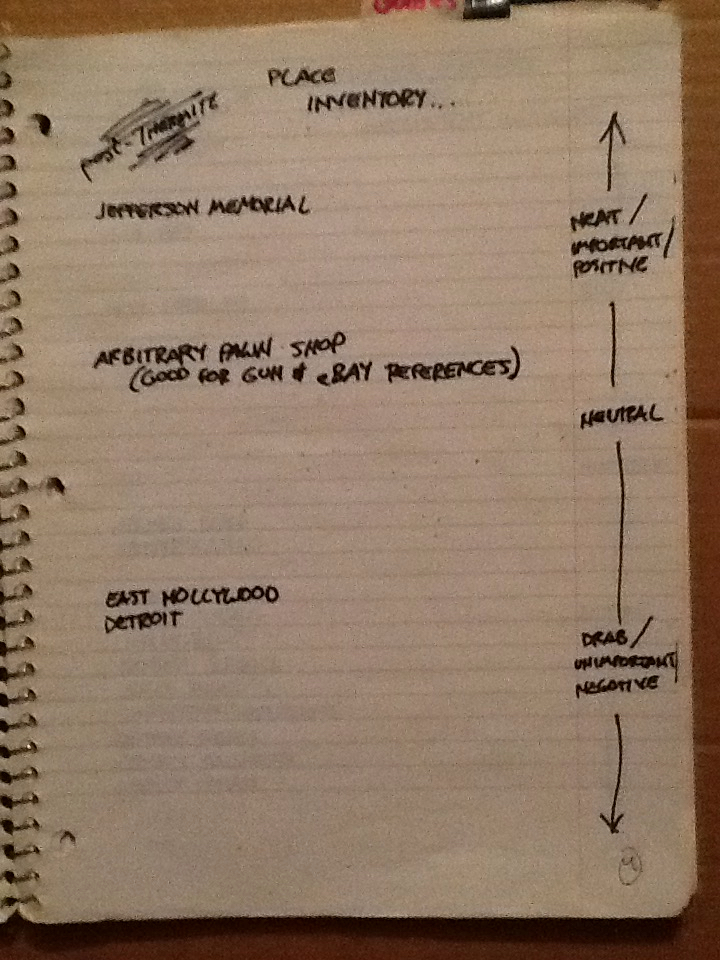 PLACE
INVENTORY...
post-THERMITE
JEFFERSON MEMORIAL
NEAT/
IMPORTANT/
POSITIVE
ARBITRARY PAWN SHOP
(GOOD FOR GUN & eBAY REFERENCES)
NEUTRAL
EAST HOLLYWOOD
DETROIT
DRAB/
UNIMPORTANT/
NEGATIVE